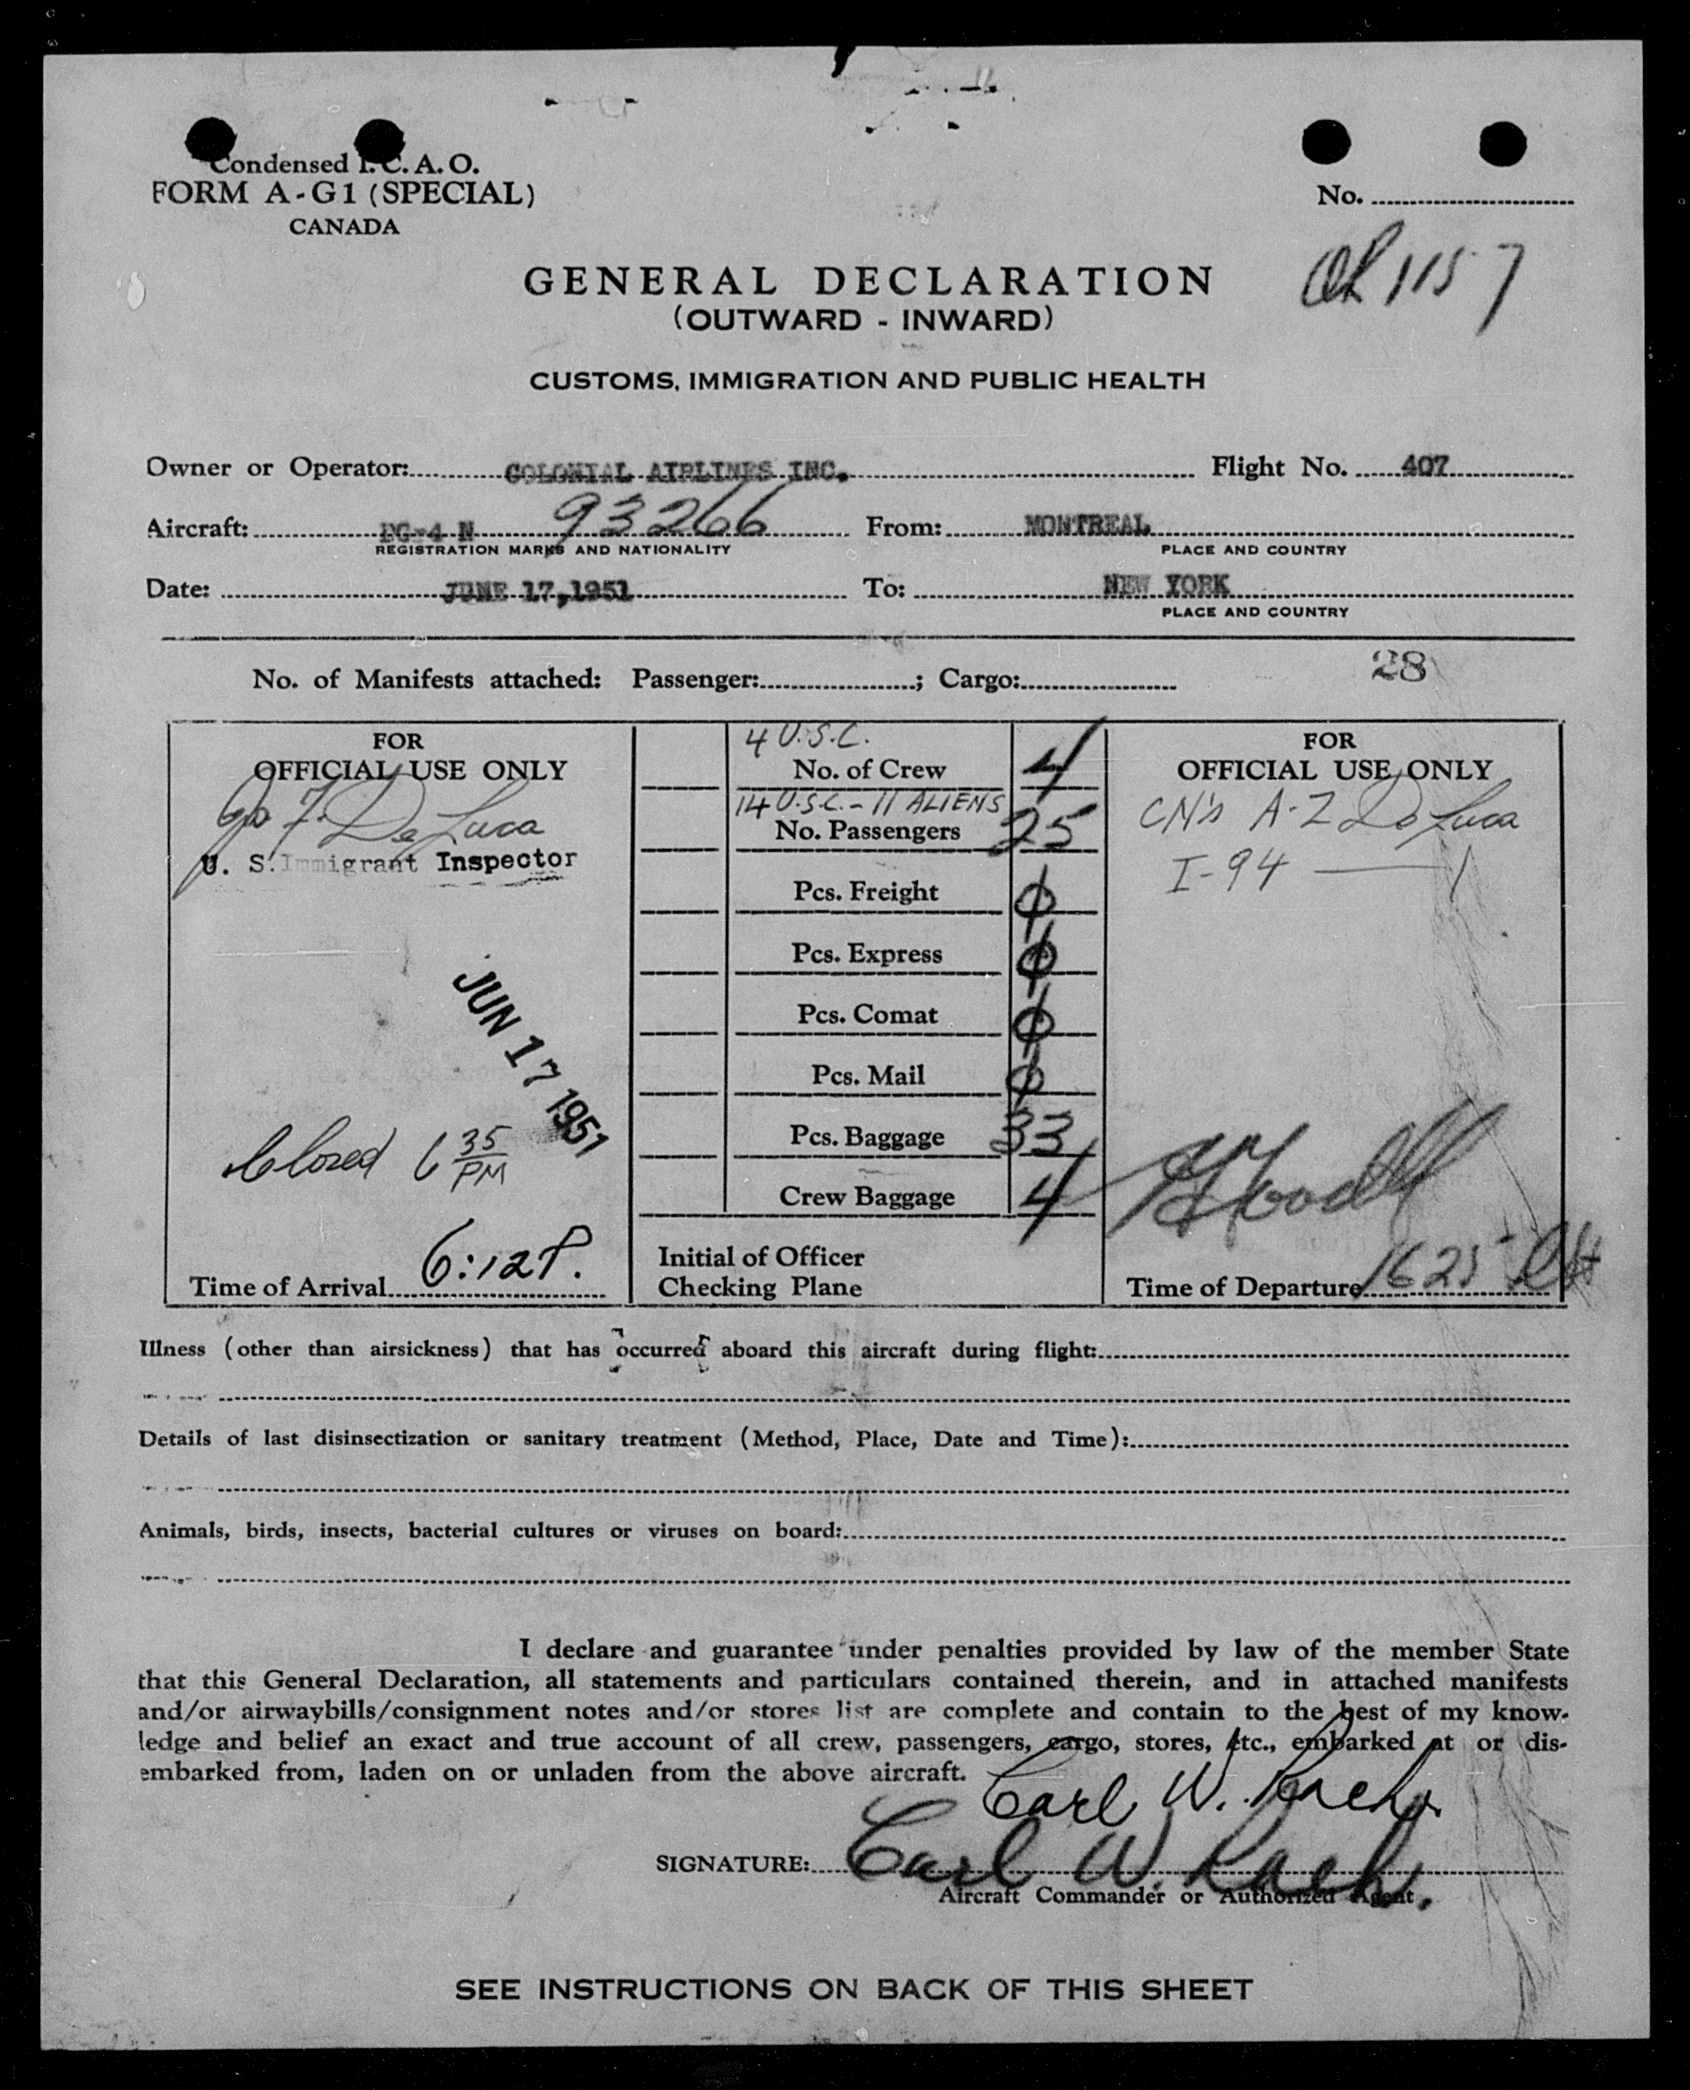 Condensed I.C.A.O.
FORM A-G1 (SPECIAL)
CANADA
No.
1157
GENERAL DECLARATION
(OUTWARD - INWARD)
CUSTOMS, IMMIGRATION AND PUBLIC HEALTH
Owner or Operator: COLONIAL AIRLINES INC. Flight No. 407
Aircraft: DC-4 N 93266 From: MONTREAL
REGISTRATION MARKS AND NATIONALITY PLACE AND COUNTRY
Date: JUNE 17,1951 To: NEW YORK
PLACE AND COUNTRY
28
No. of Manifests attached: Passenger: ; Cargo:
FOR
OFFICIAL USE ONLY
F. DeLuca
U. S. Immigrant Inspector
JUN 17 1951
Closed 6 35 PM
Time of Arrival 6:12P.
4 U.S.C.
No. of Crew 4
14 U.S.C. - 11 ALIENS
No. Passengers 25
Pcs. Freight 0
Pcs. Express 0
Pcs. Comat 0
Pcs. Mail 0
Pcs. Baggage 33
Crew Baggage 4
Initial of Officer
Checking Plane
FOR
OFFICIAL USE ONLY
CN's A-Z DeLuca
I-94 — 1
Time of Departure 1625
Illness (other than airsickness) that has occurred aboard this aircraft during flight:
Details of last disinsectization or sanitary treatment (Method, Place, Date and Time):
Animals, birds, insects, bacterial cultures or viruses on board:
I declare and guarantee under penalties provided by law of the member State
that this General Declaration, all statements and particulars contained therein, and in attached manifests
and/or airwaybills/consignment notes and/or stores list are complete and contain to the best of my know-
ledge and belief an exact and true account of all crew, passengers, cargo, stores, etc., embarked at or dis-
embarked from, laden on or unladen from the above aircraft.
Carl W.
SIGNATURE: Carl W.
Aircraft Commander or Authorized Agent
SEE INSTRUCTIONS ON BACK OF THIS SHEET